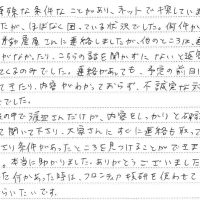 殊な条件なことがあり、ネットで探してい
たが、ほぼなく困っている状況でした。何件か
動産屋さんに連絡しましたが、他のところは
がなかったり、こちらの話を聞かずに ないと
くるのみでした。連絡があっても、予定の前日
てきたり、内容がわかっておらず、不誠実な
でした。
の中で渡正さんだけが、内容をしっかりと確認
て聞いて下さり、大家さんにすぐに連絡も取っ
さり条件があったところを見つけることができま
。本当に助かりました。ありがとうございました
た何かあった時は、フロンティア技研を使わせて
らいたいです。